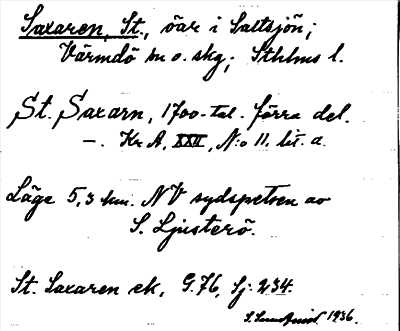 Saxaren, St., öar i Saltsjön;
Värmdö sn o. skg; Sthlms l.
St. Saxarn, 1700-tal. Förra del.
—. Kr A, XXII, N:o 11. lit. a.
Läge 5,3 km. NV sydspetsen av
S. Ljusterö.
St. Saxaren ek, G. 76, Sj. 234.
1936.